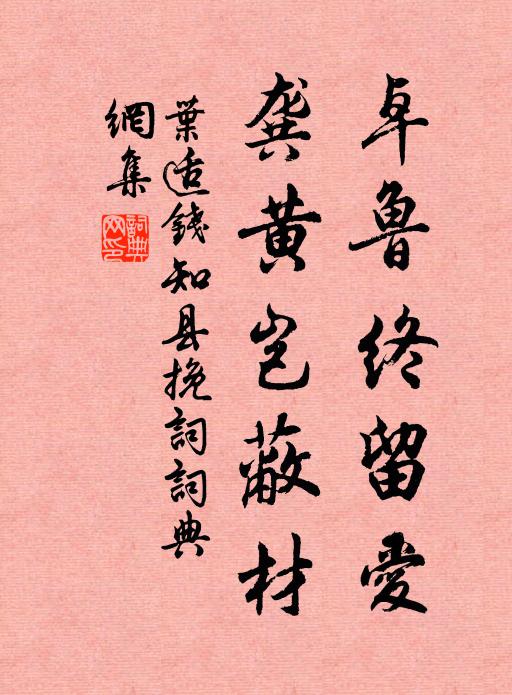 卓魯終留愛
龔黃豈蔽材
葉适錢知县挽詞詞典
網集
詞典网印